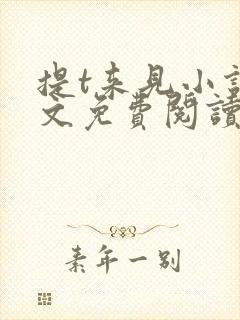 提t来见小說
文免費閱讀
素年一别